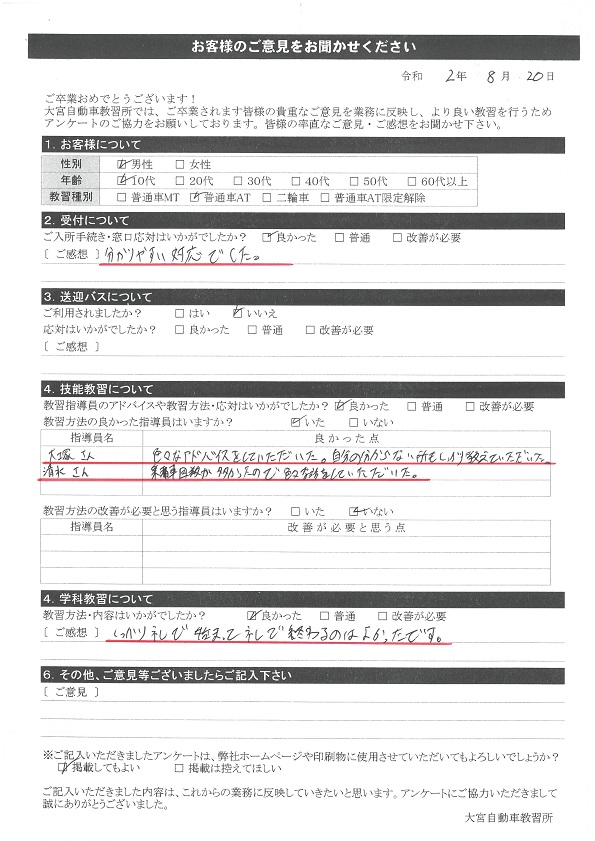 お客様のご意見をお聞かせください
令和 2年 8月 20日
ご卒業おめでとうございます！
大宮自動車教習所では、ご卒業されます皆様の貴重なご意見を業務に反映し、より良い教習を行うため
アンケートのご協力をお願いしております。皆様の率直なご意見・ご感想をお聞かせ下さい。
1. お客様について
性別 ☑男性 □女性
年齢 ☑10代 □20代 □30代 □40代 □50代 □60代以上
教習種別 □普通車MT ☑普通車AT □二輪車 □普通車AT限定解除
2. 受付について
ご入所手続き・窓口応対はいかがでしたか？ ☑良かった □普通 □改善が必要
[ ご感想 ] 分かりやすい対応でした。
3. 送迎バスについて
ご利用されましたか？ □はい ☑いいえ
応対はいかがでしたか？ □良かった □普通 □改善が必要
[ ご感想 ]
4. 技能教習について
教習指導員のアドバイスや教習方法・応対はいかがでしたか？ ☑良かった □普通 □改善が必要
教習方法の良かった指導員はいますか？ ☑いた □いない
指導員名 良かった点
大塚さん 色々なアドバイスをしていただいた。自分の分からない所もしっかり教えていただいた。
清水さん 乗車回数が多かったので色々な話をしていただいた。
教習方法の改善が必要と思う指導員はいますか？ □いた ☑いない
指導員名 改善が必要と思う点
4. 学科教習について
教習方法・内容はいかがでしたか？ ☑良かった □普通 □改善が必要
[ ご感想 ] しっかり礼で始まって礼で終わるのはよかったです。
6. その他、ご意見等ございましたらご記入下さい
[ ご意見 ]
※ご記入いただきましたアンケートは、弊社ホームページや印刷物に使用させていただいてもよろしいでしょうか？
☑掲載してもよい □掲載は控えてほしい
ご記入いただきました内容は、これからの業務に反映していきたいと思います。アンケートにご協力いただきまして
誠にありがとうございました。
大宮自動車教習所